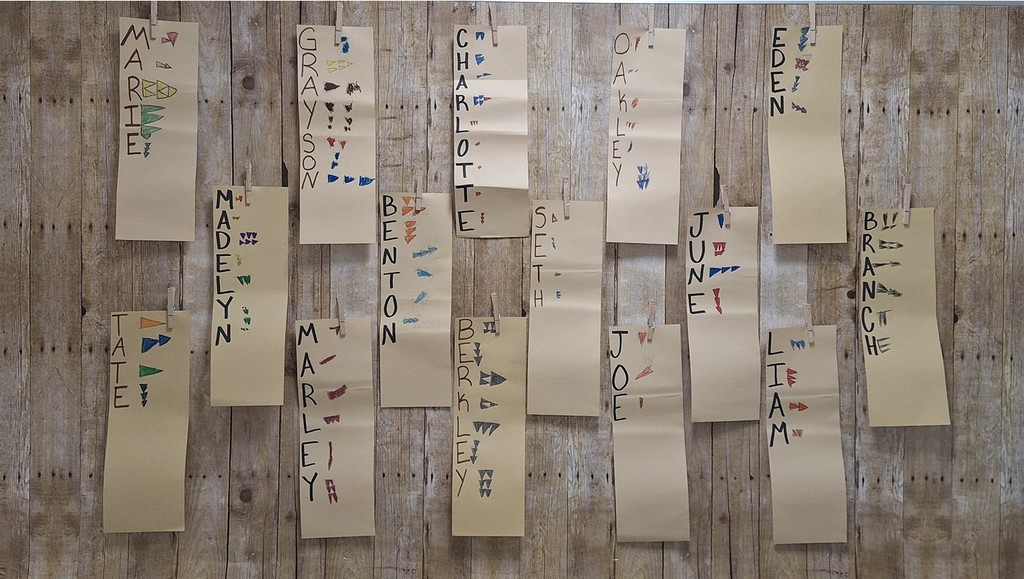 MARIE
GRAYSON
CHARLOTTE
OAKLEY
EDEN
MADELYN
BENTON
SETH
JUNE
BRANCH
TATE
MARLEY
BERKLEY
JOE
LIAM